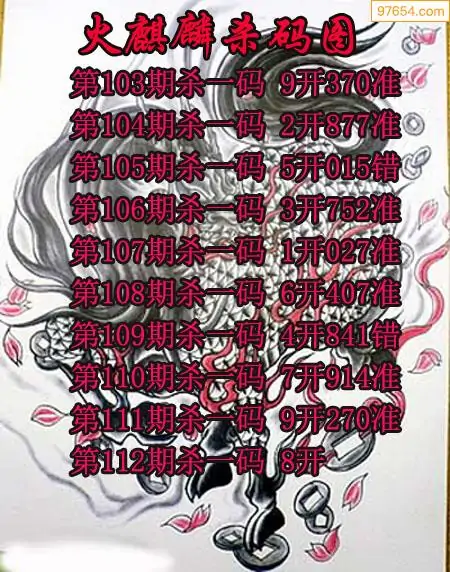 97654.com
火麒麟杀码图
第103期杀一码 9开370准
第104期杀一码 2开877准
第105期杀一码 5开015错
第106期杀一码 3开752准
第107期杀一码 1开027准
第108期杀一码 6开407准
第109期杀一码 4开841错
第110期杀一码 7开914准
第111期杀一码 9开270准
第112期杀一码 8开